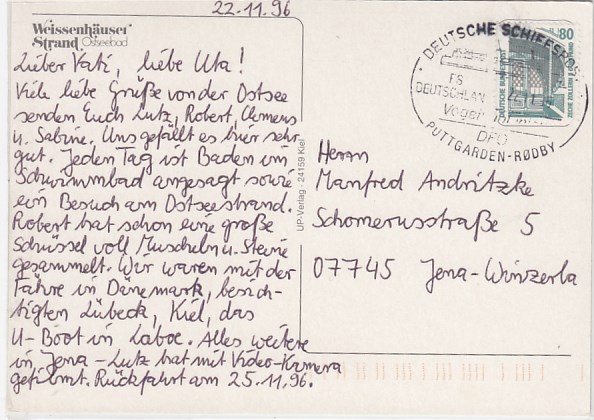 22.11.96
Weissenhäuser
Strand Ostseebad
Lieber Vati, liebe Uta!
Viele liebe Grüße von der Ostsee
senden Euch Lutz, Robert, Clemens
u. Sabine. Uns gefällt es hier sehr
gut. Jeden Tag ist Baden im
Schwimmbad angesagt sowie
ein Besuch am Ostseestrand.
Robert hat schon eine große
Schüssel voll Muscheln u. Steine
gesammelt. Wir waren mit der
Fähre in Dänemark, besich-
tigten Lübeck, Kiel, das
U-Boot in Laboe. Alles weitere
in Jena - Lutz hat mit Video-Kamera
gefilmt. Rückfahrt am 25.11.96.
UP-Verlag · 24159 Kiel
DEUTSCHE SCHIFFSPOST
FS
DEUTSCHLAND
DPO
PUTTGARDEN-RØDBY
80
DEUTSCHE BUNDESPOST
ZECHE ZOLLERN II
Herrn
Manfred Andritzke
Schomerusstraße 5
07745 Jena-Winzerla